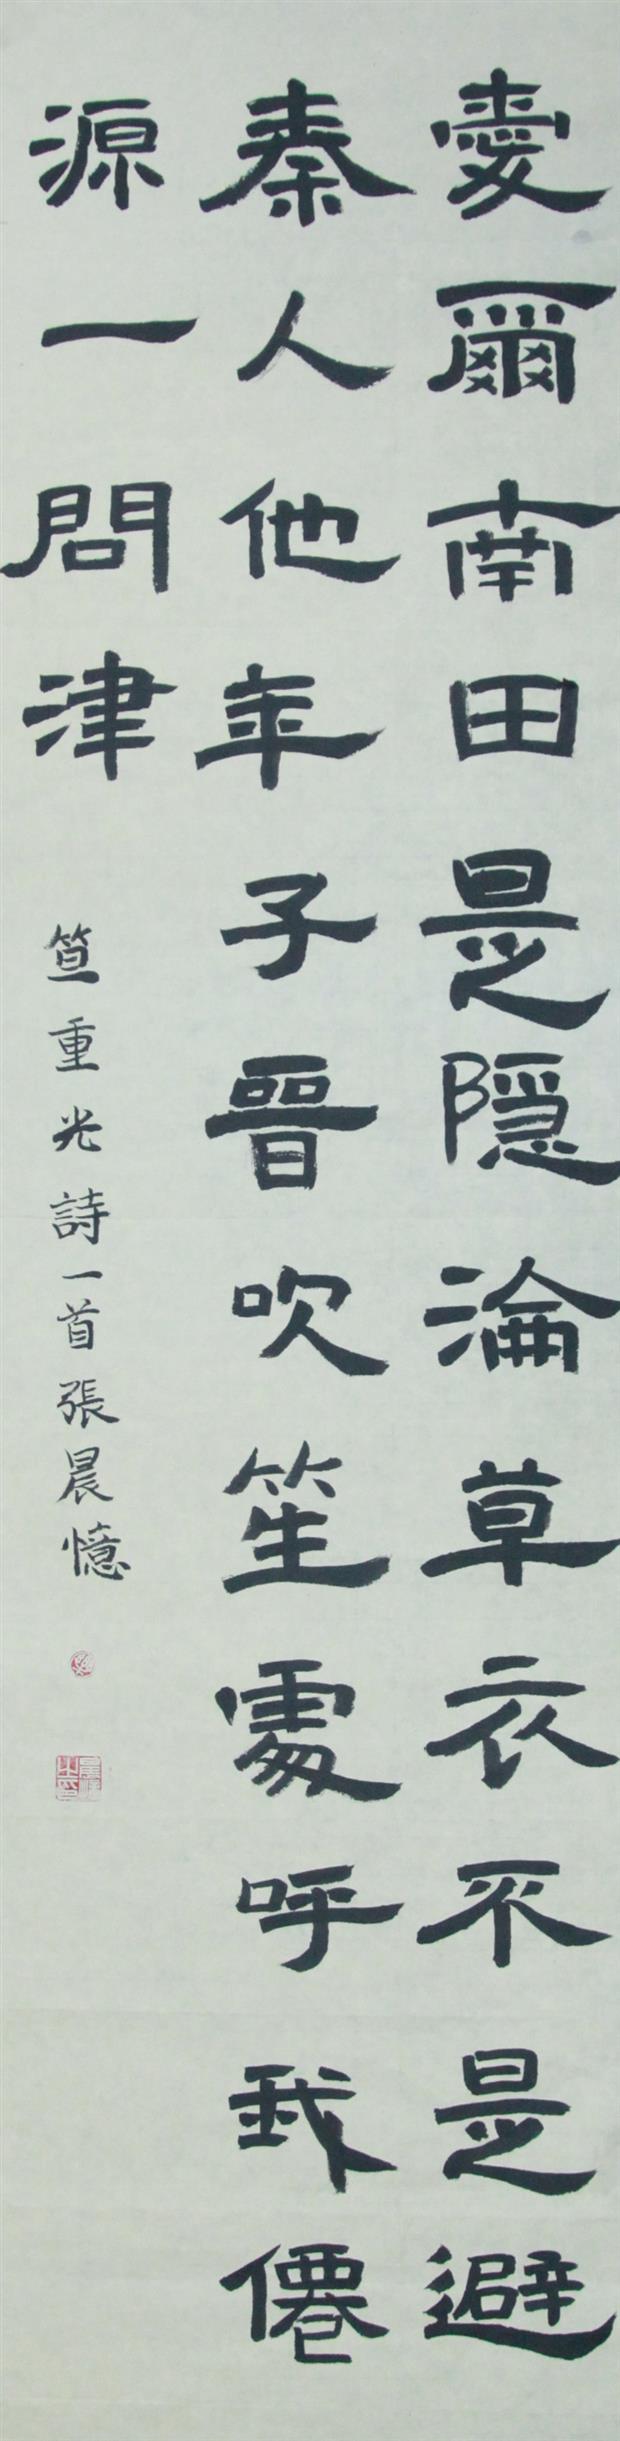 愛爾南田是隱淪草衣不是避
秦人他年子晉吹笙處呼我僊
源一問津
笪重光詩一首張晨憶